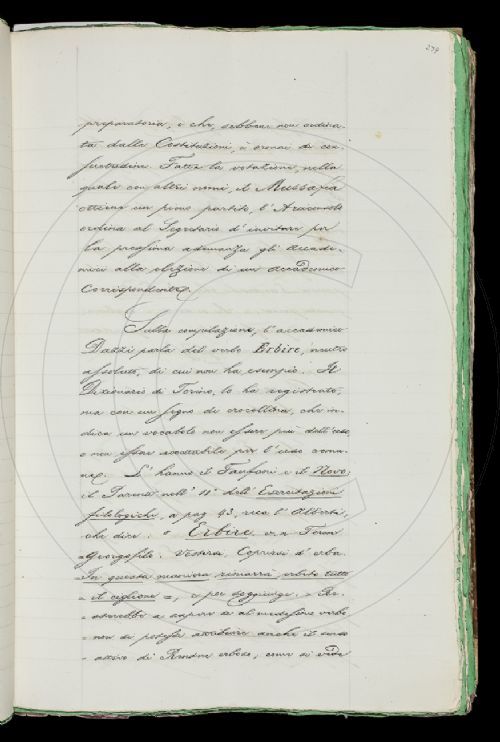 preparatoria, e che, sebbene non ordina-
ta dalle Costituzioni, è ormai di con-
suetudine. Fatta la votazione, nella
quale con altri nomi, il Mussafia
ottiene un primo partito, l'Arciconsolo
ordina al Segretario d'invitare per
la prossima adunanza gli Accade-
mici alla elezione di un Accademico
Corrispondente.
Sulla compilazione, l'accademico
Dazzi parla del verbo Erbire, neutro
assoluto, di cui non ha esempio. Il
Dizionario di Torino, lo ha registrato,
ma con un segno di crocellina, che in-
dica un vocabolo non essere più dell'uso,
o non essere accettabile per l'uso comu-
ne. L'hanno il Fanfani e il Novo;
il Parenti nell' 11° dell' Esercitazioni
filologiche, a pag. 43, reca l'Alberti,
che dice: Erbire, v. n. Term.
Georgofilo. Vestirsi, Coprirsi d'erba.
In questa maniera rimarrà erbito tutto
il ciglione =, e poi soggiunge: = Re-
= sterebbe a sapere se al medesimo verbo
= non si potesse attribuire anche il senso
= attivo di Rendere erboso, come si vede